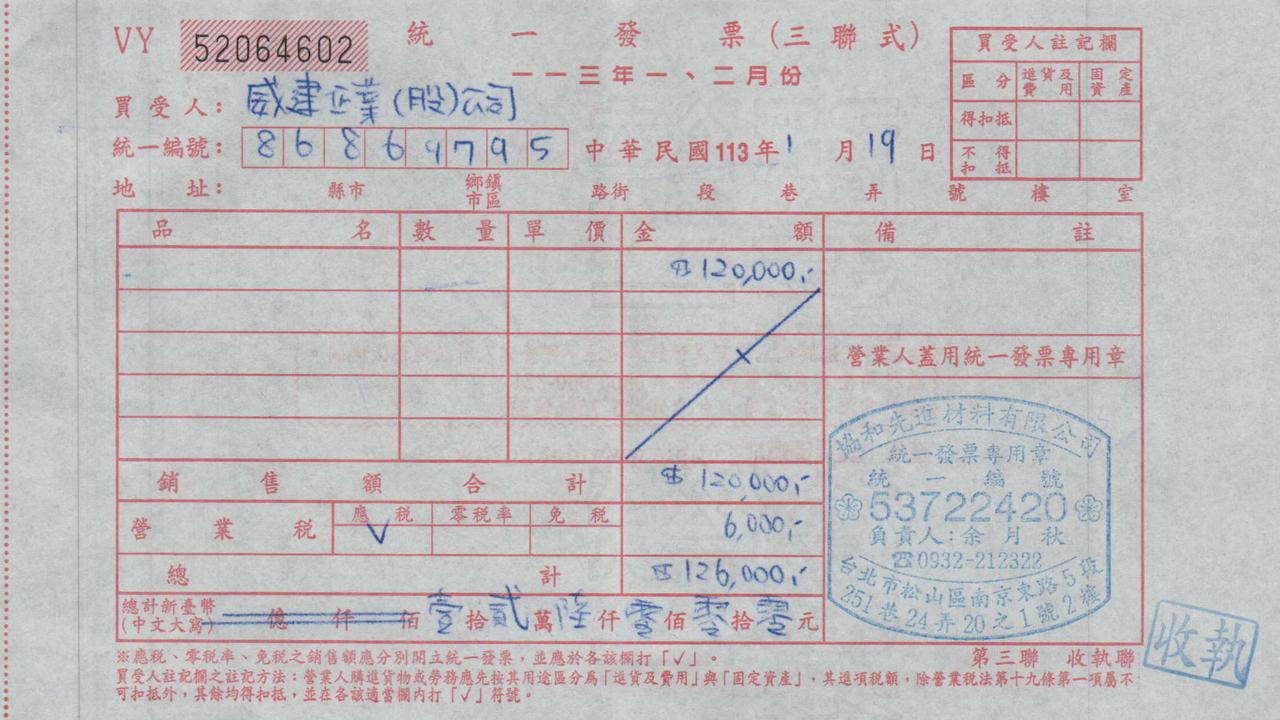 VY 52064602 統一發票(三聯式)
一一三年一、二月份
買受人: 威建企業(股)公司
統一編號: 86869795 中華民國113年1月19日
地址: 縣市 鄉鎮市區 路街 段 巷 弄 號 樓 室
買受人註記欄
區分 進貨及費用 固定資產
得扣抵
不得扣抵
品名 數量 單價 金額 備註
$120,000,-
營業人蓋用統一發票專用章
銷售額合計 $120,000,-
營業稅 應稅 零稅率 免稅 6,000,-
V
總計 $126,000,-
總計新臺幣(中文大寫) 億 仟 佰 壹拾貳萬陸仟零佰零拾零元
協和先進材料有限公司
統一發票專用章
統一編號
53722420
負責人:余月秋
☎0932-212322
台北市松山區南京東路5段
251巷24弄20之1號2樓
※應稅、零稅率、免稅之銷售額應分別開立統一發票，並應於各該欄打「✓」。
第三聯 收執聯
收執
買受人註記欄之註記方法：營業人購進貨物或勞務應先按其用途區分為「進貨及費用」與「固定資產」，其進項稅額，除營業稅法第十九條第一項屬不
可扣抵外，其餘均得扣抵，並在各該適當欄內打「✓」符號。